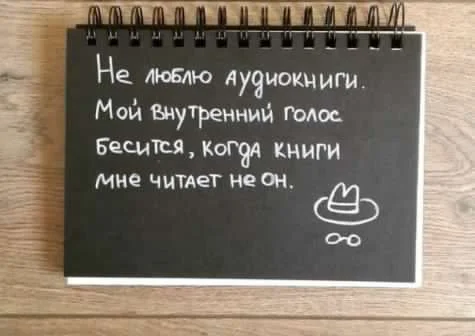 Не люблю аудиокниги.
Мой внутренний голос
бесится, когда книги
мне читает не он.